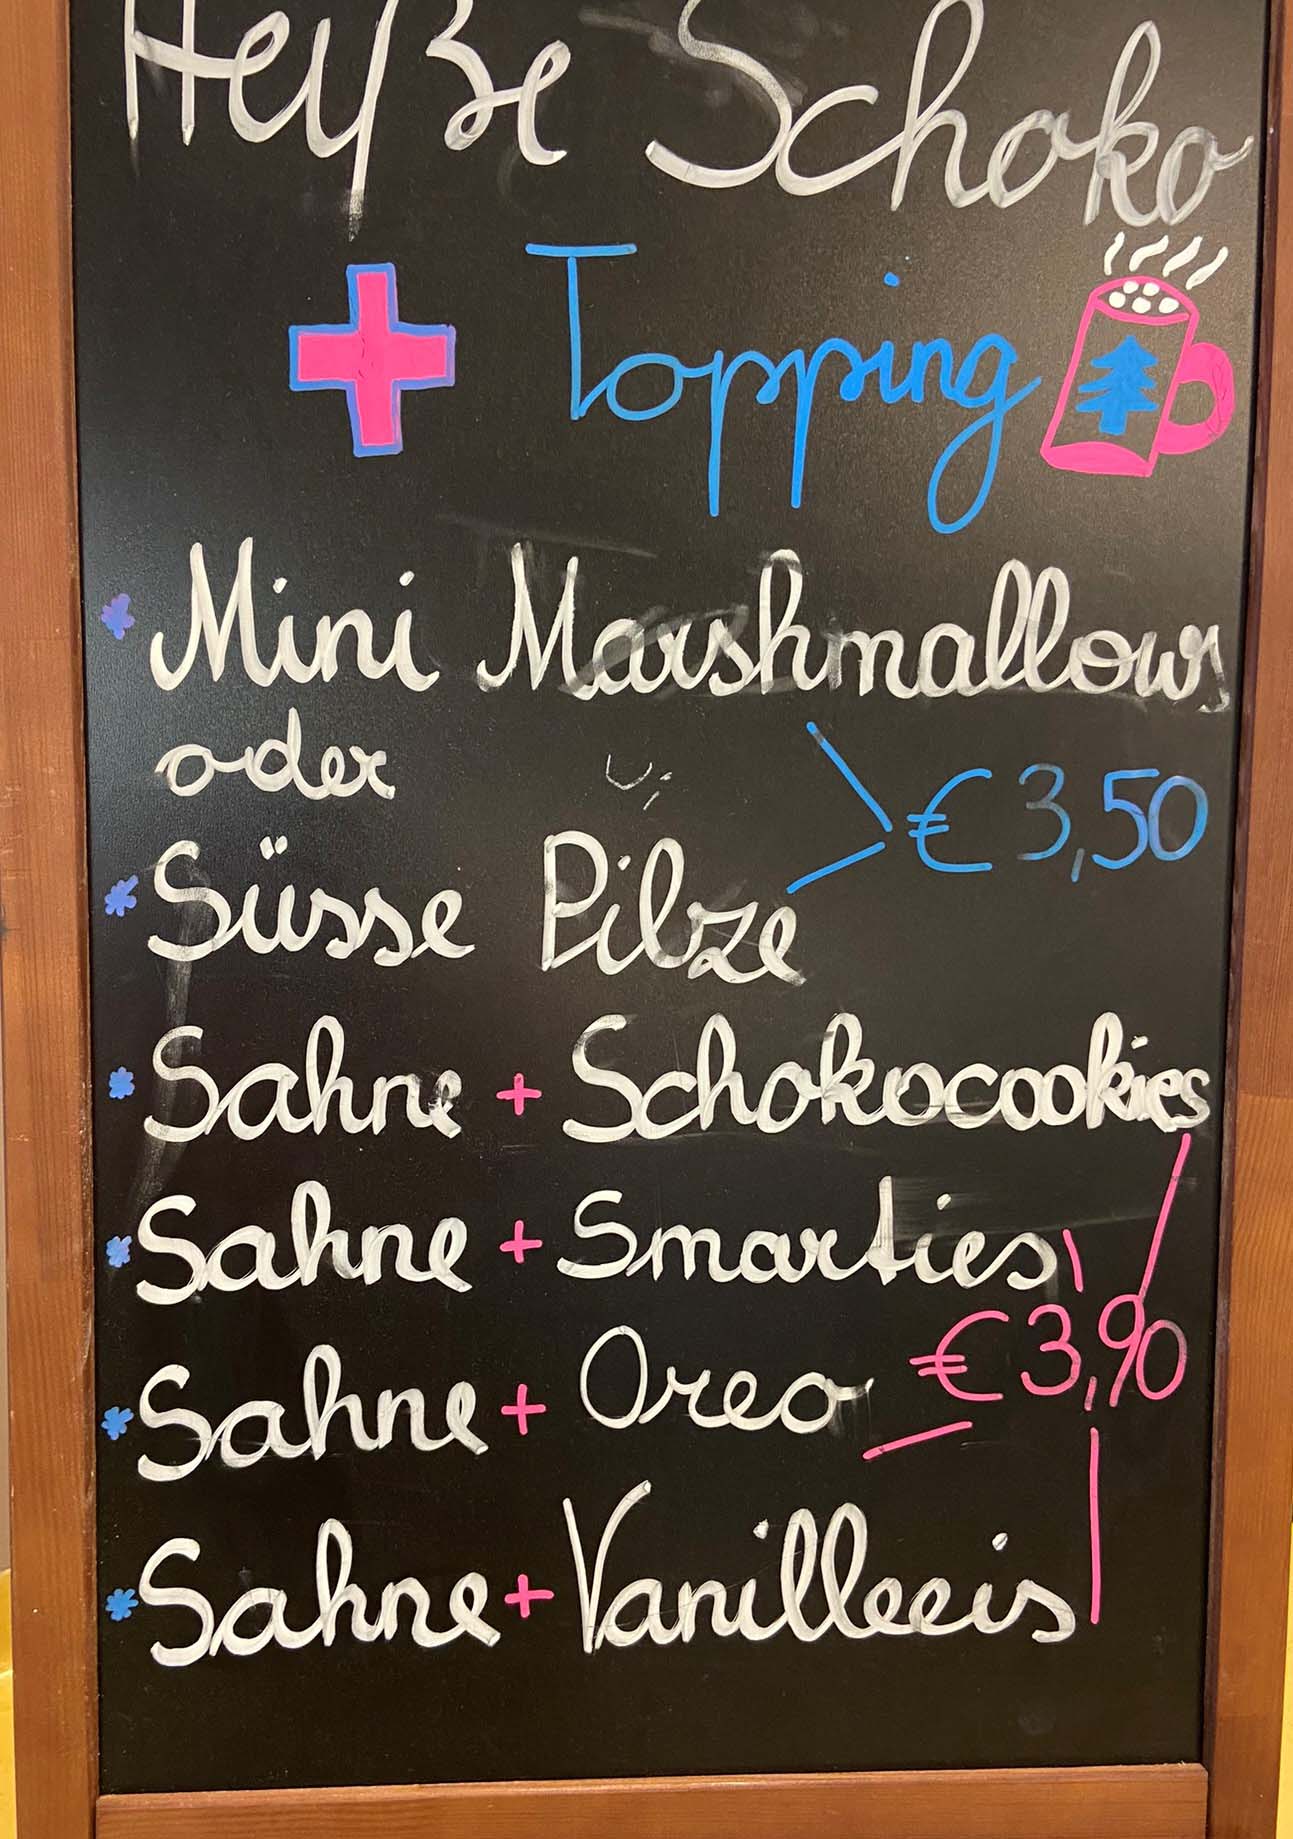 Heiße Schoko
+ Topping
* Mini Marshmallows
oder
€ 3,50
* Süsse Pilze
* Sahne + Schokocookies
* Sahne + Smarties
€ 3,90
* Sahne + Oreo
* Sahne + Vanilleeis